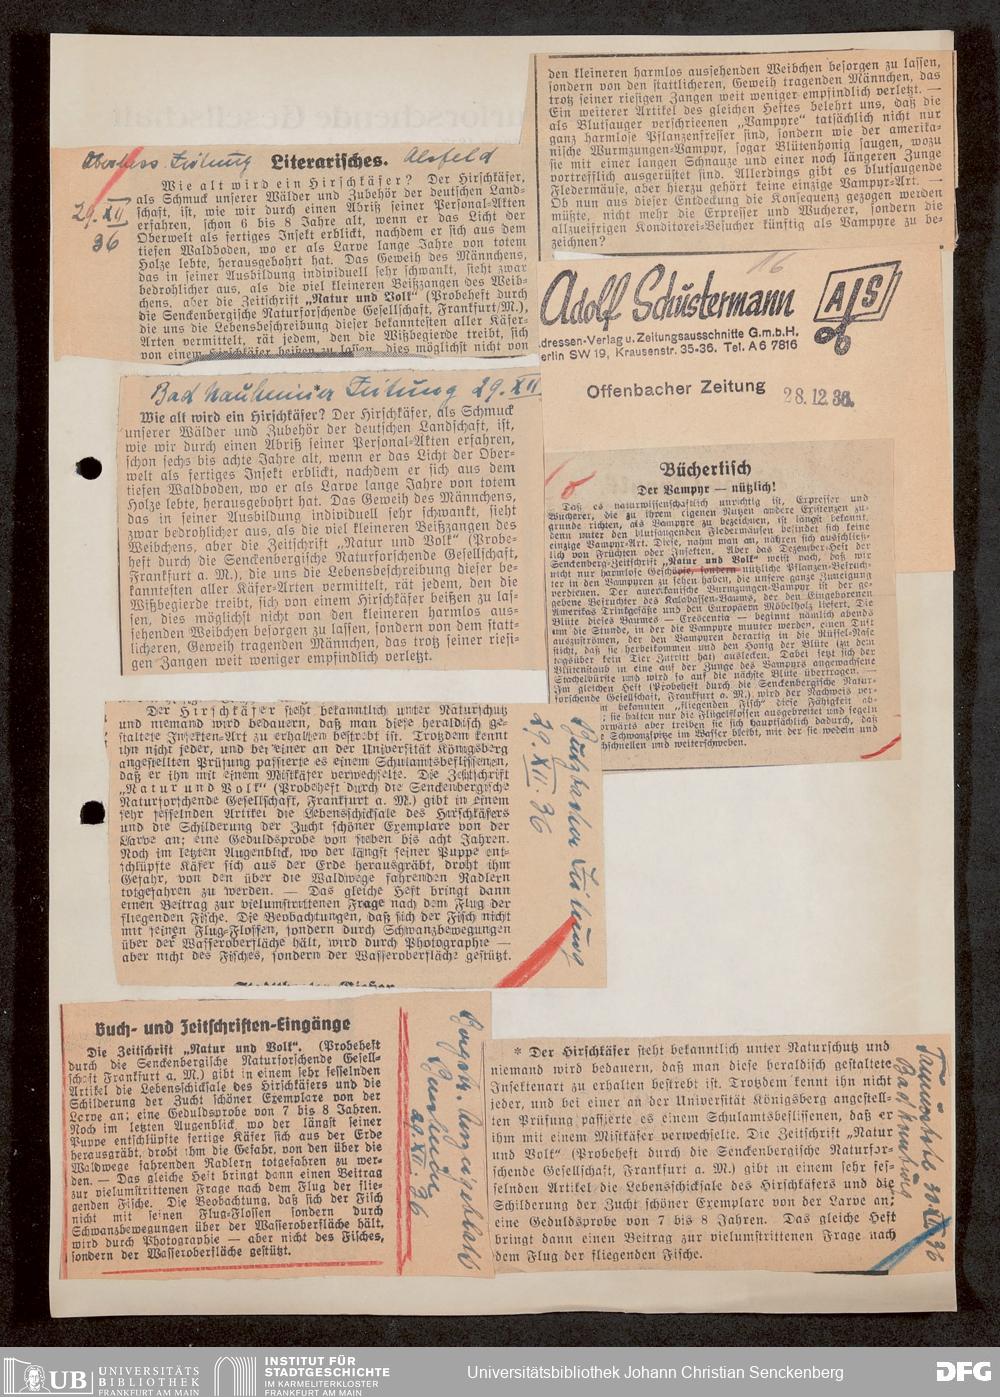 Oberhess. Zeitung Literarisches. Alsfeld
29. XII
36
Wie alt wird ein Hirschkäfer? Der Hirschkäfer,
als Schmuck unserer Wälder und Zubehör der deutschen Land-
schaft, ist, wie wir durch einen Abriß seiner Personal-Akten
erfahren, schon 6 bis 8 Jahre alt, wenn er das Licht der
Oberwelt als fertiges Insekt erblickt, nachdem er sich aus dem
tiefen Waldboden, wo er als Larve lange Jahre von totem
Holze lebte, herausgebohrt hat. Das Geweih des Männchens,
das in seiner Ausbildung individuell sehr schwankt, sieht zwar
bedrohlicher aus, als die viel kleineren Beißzangen des Weib-
chens, aber die Zeitschrift „Natur und Volk“ (Probeheft durch
die Senckenbergische Naturforschende Gesellschaft, Frankfurt/M.),
die uns die Lebensbeschreibung dieser bekanntesten aller Käfer-
Arten vermittelt, rät jedem, den die Wißbegierde treibt, sich
von einem Hirschkäfer beißen zu lassen, dies möglichst nicht von
den kleineren harmlos aussehenden Weibchen besorgen zu lassen,
sondern von den stattlicheren, Geweih tragenden Männchen, das
trotz seiner riesigen Zangen weit weniger empfindlich verletzt. —
Ein weiterer Artikel des gleichen Heftes belehrt uns, daß die
als Blutsauger verschrieenen „Vampyre“ tatsächlich nicht nur
ganz harmlose Pflanzenfresser sind, sondern wie der amerika-
nische Wurmzungen-Vampyr, sogar Blütenhonig saugen, wozu
sie mit einer langen Schnauze und einer noch längeren Zunge
vortrefflich ausgerüstet sind. Allerdings gibt es blutsaugende
Fledermäuse, aber hierzu gehört keine einzige Vampyr-Art. —
Ob nun aus dieser Entdeckung die Konsequenz gezogen werden
müßte, nicht mehr die Erpresser und Wucherer, sondern die
allzueifrigen Konditorei-Besucher künftig als Vampyre zu be-
zeichnen?
16
Adolf Schustermann
A S
dressen-Verlag u. Zeitungsausschnitte G.m.b.H.
erlin SW 19, Krausenstr. 35-36. Tel. A 6 7816
Offenbacher Zeitung 28.12.36.
Büchertisch
Der Vampyr — nützlich!
Daß es naturwissenschaftlich unrichtig ist, Erpresser und
Wucherer, die zu ihrem eigenen Nutzen andere Existenzen zu-
grunde richten, als Vampyre zu bezeichnen, ist längst bekannt,
denn unter den blutsaugenden Fledermäusen befindet sich keine
einzige Vampyr-Art. Diese, nahm man an, nähren sich ausschließ-
lich von Früchten oder Insekten. Aber das Dezember-Heft der
Senckenberg-Zeitschrift „Natur und Volk“ weist nach, daß wir
nicht nur harmlose Geschöpfe, sondern nützliche Pflanzen-Befruch-
ter in den Vampyren zu sehen haben, die unsere ganze Zuneigung
verdienen. Der amerikanische Wurmzungen-Vampyr ist der ge-
gebene Befruchter des Kalabassen-Baums, der den Eingeborenen
Amerikas Trinkgefäße und den Europäern Möbelholz liefert. Die
Blüte dieses Baumes — Crescentia — beginnt nämlich abends
um die Stunde, in der die Vampyre munter werden, einen Duft
auszuströmen, der den Vampyren derartig in die Rüssel-Nase
sticht, daß sie herbeikommen und den Honig der Blüte (zu dem
tagsüber kein Tier Zutritt hat) auslecken. Dabei setzt sich der
Blütenstaub in eine auf der Zunge des Vampyrs angewachsene
Stachelbürste und wird so auf die nächste Blüte übertragen. —
Im gleichen Heft (Probeheft durch die Senckenbergische Natur-
forschende Gesellschaft, Frankfurt a. M.) wird der Nachweis ver-
m bekannten „fliegenden Fisch“ diese Fähigkeit ab-
; sie halten nur die Flügelflossen ausgebreitet und segeln
orwärts aber treiben sie sich hauptsächlich dadurch, daß
e Schwanzspitze im Wasser bleibt, mit der sie wedeln und
hschnellen und weiterschweben.
Bad Nauheimer Zeitung 29. XII
Wie alt wird ein Hirschkäfer? Der Hirschkäfer, als Schmuck
unserer Wälder und Zubehör der deutschen Landschaft, ist,
wie wir durch einen Abriß seiner Personal-Akten erfahren,
schon sechs bis achte Jahre alt, wenn er das Licht der Ober-
welt als fertiges Insekt erblickt, nachdem er sich aus dem
tiefen Waldboden, wo er als Larve lange Jahre von totem
Holze lebte, herausgebohrt hat. Das Geweih des Männchens,
das in seiner Ausbildung individuell sehr schwankt, sieht
zwar bedrohlicher aus, als die viel kleineren Beißzangen des
Weibchens, aber die Zeitschrift „Natur und Volk“ (Probe-
heft durch die Senckenbergische Naturforschende Gesellschaft,
Frankfurt a. M.), die uns die Lebensbeschreibung dieser be-
kanntesten aller Käfer-Arten vermittelt, rät jedem, den die
Wißbegierde treibt, sich von einem Hirschkäfer beißen zu las-
sen, dies möglichst nicht von den kleineren harmlos aus-
sehenden Weibchen besorgen zu lassen, sondern von dem statt-
licheren, Geweih tragenden Männchen, das trotz seiner riesi-
gen Zangen weit weniger empfindlich verletzt.
Der Hirschkäfer steht bekanntlich unter Naturschutz
und niemand wird bedauern, daß man diese heraldisch ge-
staltete Insekten-Art zu erhalten bestrebt ist. Trotzdem kennt
ihn nicht jeder, und bei einer an der Universität Königsberg
angestellten Prüfung passierte es einem Schulamtsbeflissenen,
daß er ihn mit einem Mistkäfer verwechselte. Die Zeitschrift
„Natur und Volk“ (Probeheft durch die Senckenbergische
Naturforschende Gesellschaft, Frankfurt a. M.) gibt in einem
sehr fesselnden Artikel die Lebensschicksale des Hirschkäfers
und die Schilderung der Zucht schöner Exemplare von der
Larve an; eine Geduldsprobe von sieben bis acht Jahren.
Noch im letzten Augenblick, wo der längst seiner Puppe ent-
schlüpfte Käfer sich aus der Erde herausgräbt, droht ihm
Gefahr, von den über die Waldwege fahrenden Radlern
totgefahren zu werden. — Das gleiche Heft bringt dann
einen Beitrag zur vielumstrittenen Frage nach dem Flug der
fliegenden Fische. Die Beobachtungen, daß sich der Fisch nicht
mit seinen Flug-Flossen, sondern durch Schwanzbewegungen
über der Wasseroberfläche hält, wird durch Photographie —
aber nicht des Fisches, sondern der Wasseroberfläche gestützt.
Zeitung
29. XII. 36
Buch- und Zeitschriften-Eingänge
Die Zeitschrift „Natur und Volk“. (Probeheft
durch die Senckenbergische Naturforschende Gesell-
schaft Frankfurt a. M.) gibt in einem sehr fesselnden
Artikel die Lebensschicksale des Hirschkäfers und die
Schilderung der Zucht schöner Exemplare von der
Larve an; eine Geduldsprobe von 7 bis 8 Jahren.
Noch im letzten Augenblick, wo der längst seiner
Puppe entschlüpfte fertige Käfer sich aus der Erde
herausgräbt, droht ihm die Gefahr, von den über die
Waldwege fahrenden Radlern totgefahren zu wer-
den. — Das gleiche Heft bringt dann einen Beitrag
zur vielumstrittenen Frage nach dem Flug der flie-
genden Fische. Die Beobachtung, daß sich der Fisch
nicht mit seinen Flug-Flossen sondern durch
Schwanzbewegungen über der Wasseroberfläche hält,
wird durch Photographie — aber nicht des Fisches,
sondern der Wasseroberfläche gestützt.
29. XII. 36
* Der Hirschkäfer steht bekanntlich unter Naturschutz und
niemand wird bedauern, daß man diese heraldisch gestaltete
Insektenart zu erhalten bestrebt ist. Trotzdem kennt ihn nicht
jeder, und bei einer an der Universität Königsberg angestell-
ten Prüfung passierte es einem Schulamtsbeflissenen, daß er
ihm mit einem Mistkäfer verwechselte. Die Zeitschrift „Natur
und Volk“ (Probeheft durch die Senckenbergische Naturfor-
schende Gesellschaft, Frankfurt a. M.) gibt in einem sehr fes-
selnden Artikel die Lebensschicksale des Hirschkäfers und die
Schilderung der Zucht schöner Exemplare von der Larve an;
eine Geduldsprobe von 7 bis 8 Jahren. Das gleiche Heft
bringt dann einen Beitrag zur vielumstrittenen Frage nach
dem Flug der fliegenden Fische.
Taunusbote 30 XII 36
Bad Homburg
UB UNIVERSITÄTS
BIBLIOTHEK
FRANKFURT AM MAIN
INSTITUT FÜR
STADTGESCHICHTE
IM KARMELITERKLOSTER
FRANKFURT AM MAIN
Universitätsbibliothek Johann Christian Senckenberg
DFG